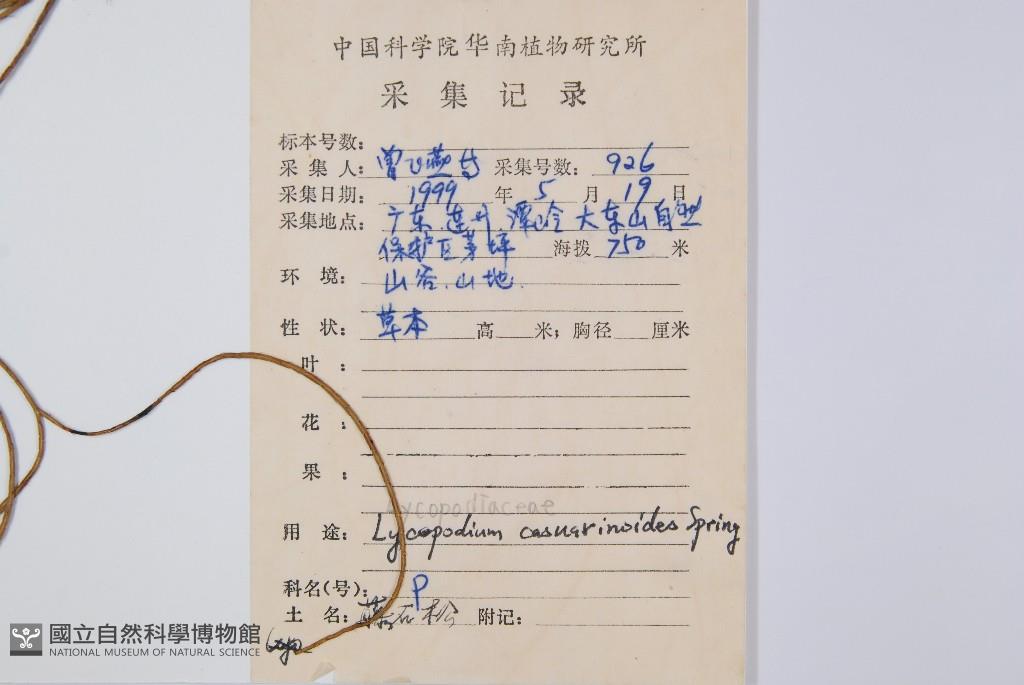 中国科学院华南植物研究所
采集记录
标本号数：
采集人：曾飞燕等 采集号数：926
采集日期：1999年5月19日
采集地点：广东.连州.潭岭大东山自然
保护区茅坪 海拨750米
环境：山谷.山地.
性状：草本 高 米；胸径 厘米
叶：
花：
果：
Lycopodiaceae
用途：Lycopodium casuarinoides Spring
科名(号)：P
土名：藤石松 附记：
國立自然科學博物館
NATIONAL MUSEUM OF NATURAL SCIENCE